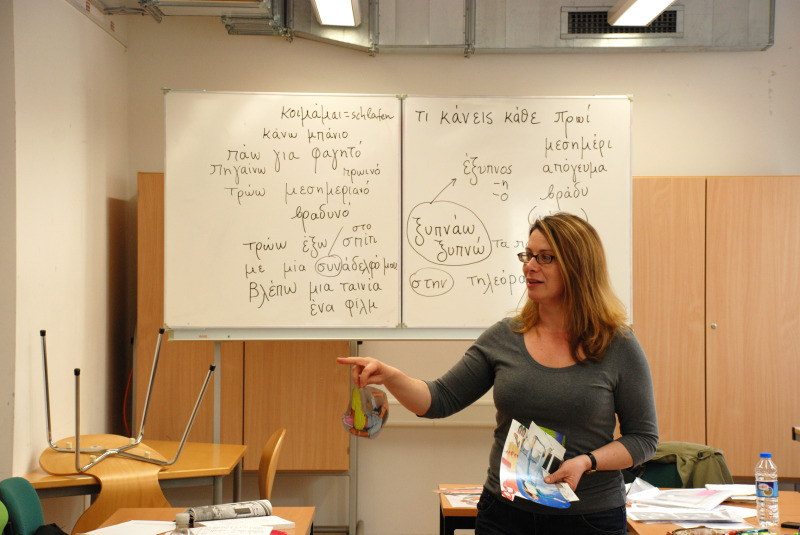 κοιμάμαι = schlafen
κάνω μπάνιο
πάω για φαγητό
πηγαίνω πρωινό
τρώω μεσημεριανό
βραδυνο
στο
τρώω έξω σπίτι
με μία συνάδελφό μου
βλέπω μια ταινία
ένα φίλμ
Τι κάνεις κάθε πρωί
μεσημέρι
έξυπνος απόγευμα
-η
-ο βράδυ
ξυπνάω
ξυπνώ τα
στην